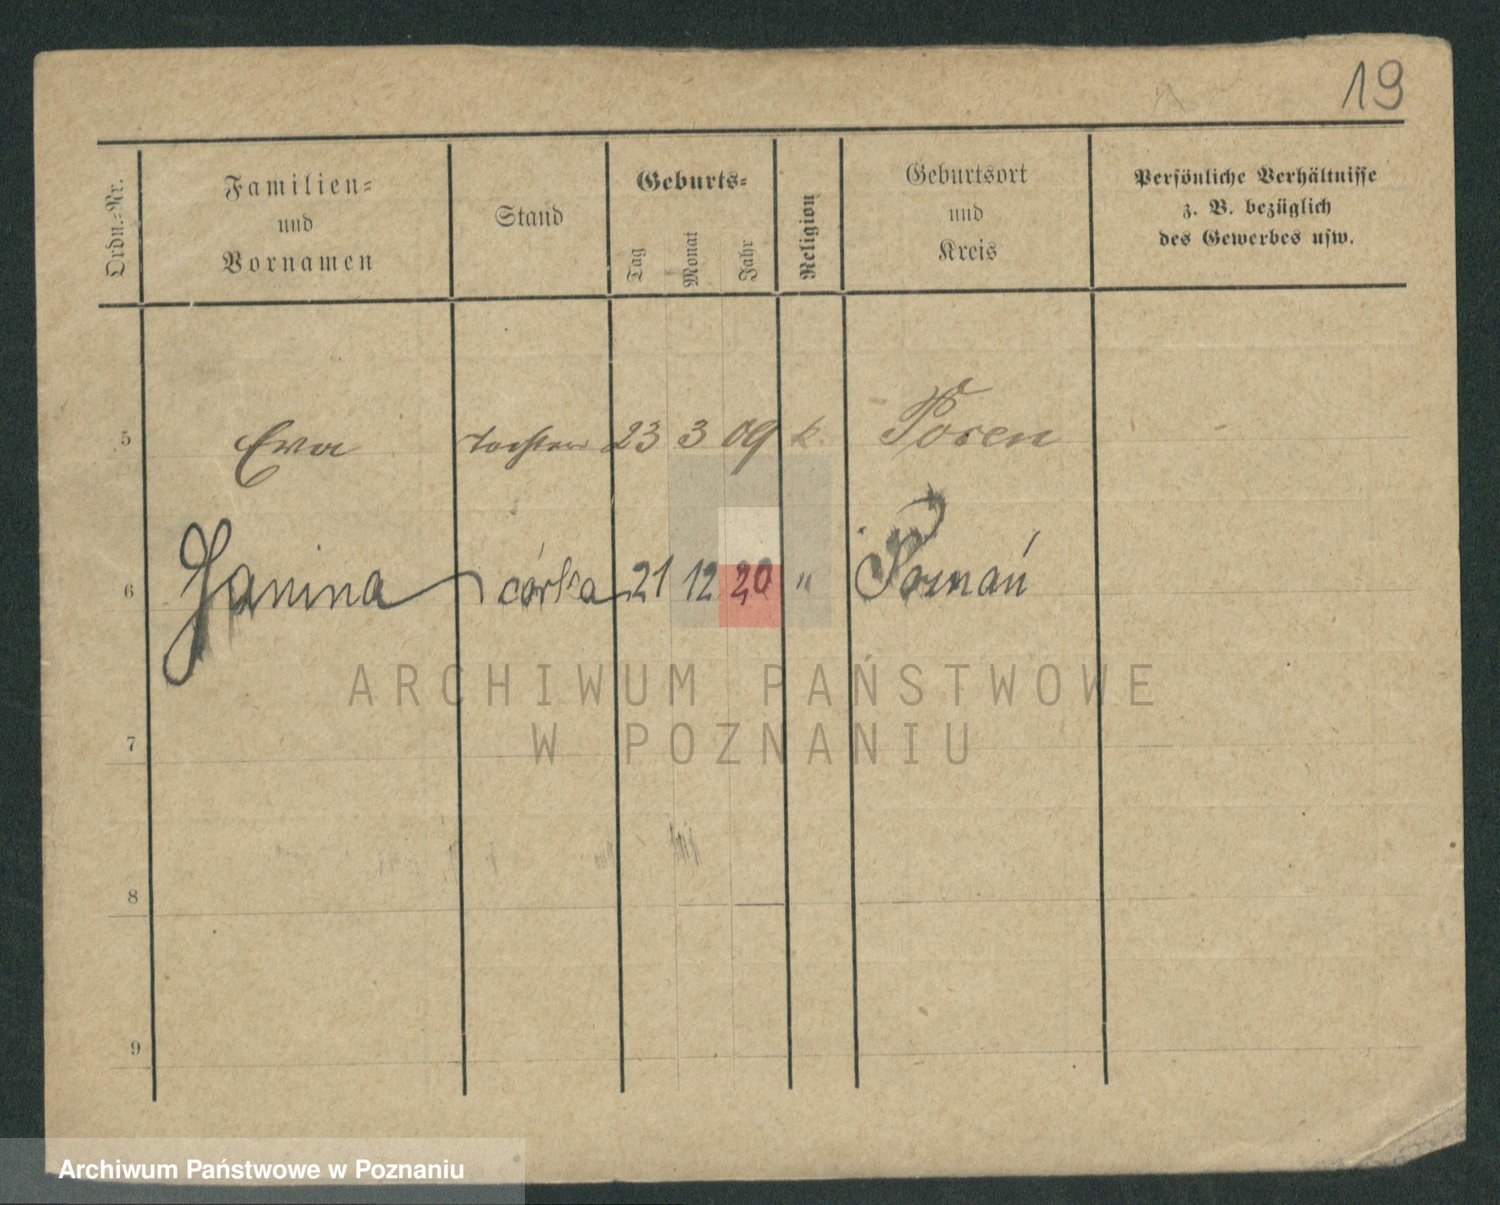 19
Ordn.-Nr.
Familien-
und
Vornamen
Stand
Geburts-
Tag
Monat
Jahr
Religion
Geburtsort
und
Kreis
Persönliche Verhältnisse
z. B. bezüglich
des Gewerbes usw.
5 Eva Tochter 23 3 09 k. Posen
6 Janina córka 21 12 20 " Poznań
ARCHIWUM PAŃSTWOWE
W POZNANIU
7
8
9
Archiwum Państwowe w Poznaniu